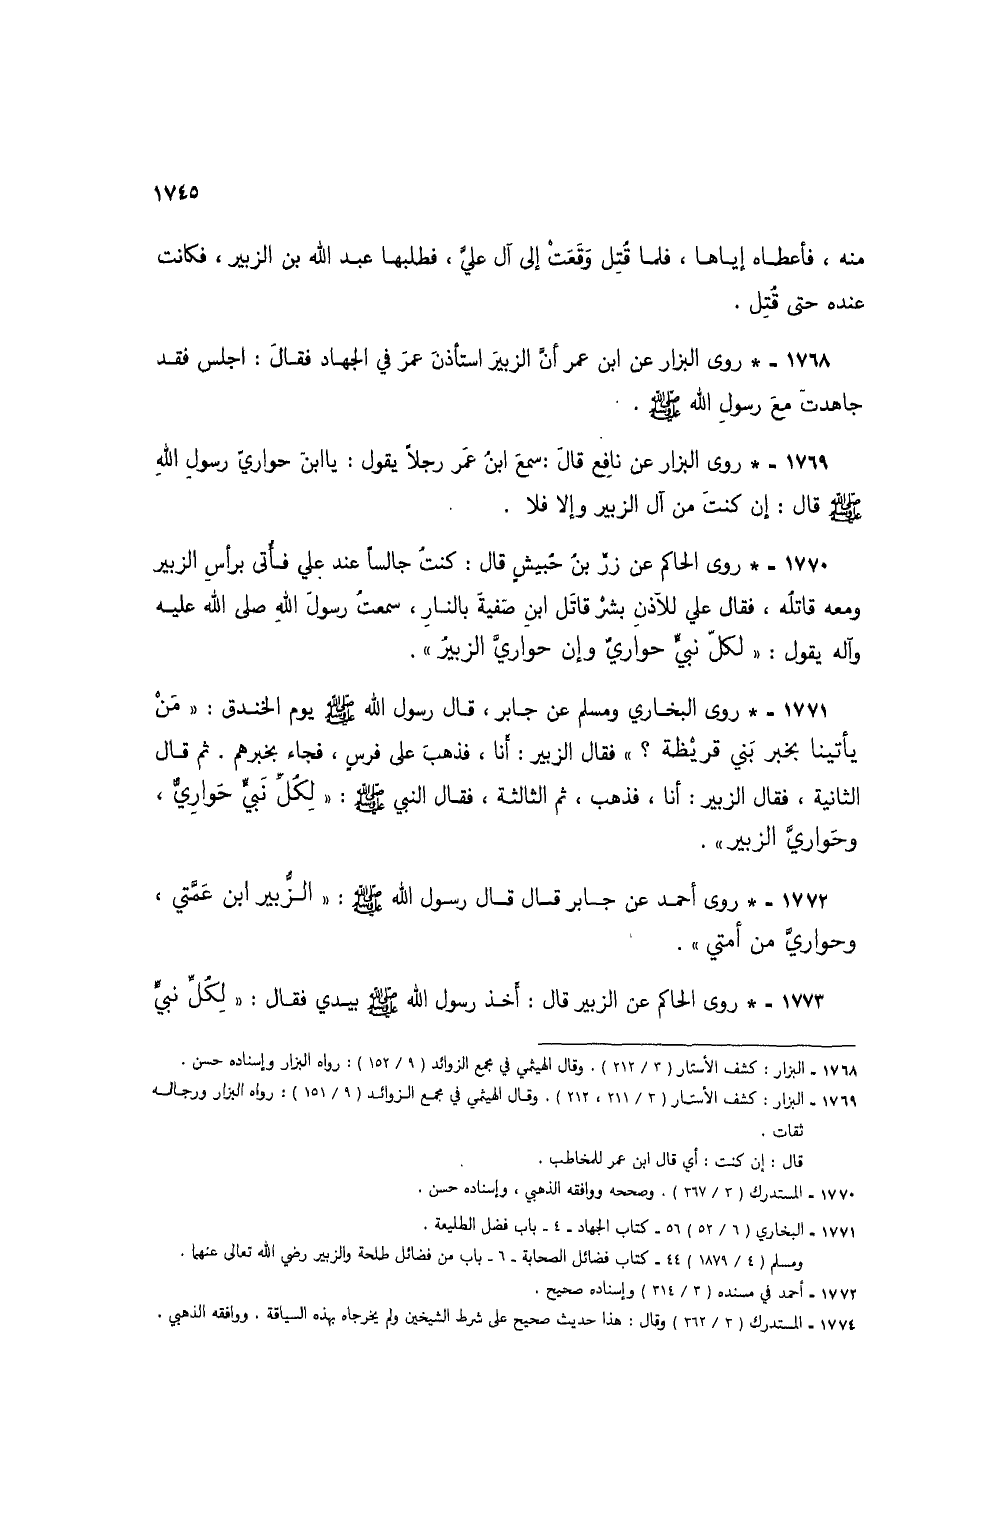 ١٧٤٥
منه ، فأعطاه إياها ، فلما قُتِل وَقَعَتْ إلى آل عليٍّ ، فطلبها عبد الله بن الزبير ، فكانت
عنده حتى قُتِل .
١٧٦٨ - * روى البزار عن ابن عمر أنَّ الزبيرَ استأذنَ عمرَ في الجهاد فقالَ : اجلس فقد
جاهدتَ معَ رسولِ الله ﷺ .
١٧٦٩ - * روى البزار عن نافِع قالَ :سمعَ ابنُ عمَر رجلاً يقول : ياابنَ حواريّ رسولِ اللهِ
ﷺ قال : إن كنتَ من آل الزبير وإلا فلا .
١٧٧٠ - * روى الحاكم عن زرّ بنُ حُبيشٍ قال : كنتُ جالساً عند علي فأُتى برأسِ الزبير
ومعه قاتلُه ، فقال علي للآذنِ بشرْ قاتَل ابنِ صَفيةَ بالنارِ ، سمعتُ رسولَ اللهِ صلى الله عليه
وآله يقول : « لكلّ نبيٍّ حواريٌ وإن حواريَّ الزبيرُ » .
١٧٧١ - * روى البخاري ومسلم عن جابر ، قال رسول الله ﷺ يوم الخندق : « مَنْ
يأتينا بخبر بَني قريْظة ؟ » فقال الزبير : أنا ، فذهبَ على فرسٍ ، فجاء بخبرهم . ثم قال
الثانية ، فقال الزبير : أنا ، فذهب ، ثم الثالثة ، فقال النبي ﷺ : « لِكُلِّ نَبيٍّ حَوارِيٌّ ،
وحَواريَّ الزبير » .
١٧٧٢ - * روى أحمد عن جابر قال قال رسول الله ﷺ : « الزُّبير ابن عَمَّتي ،
وحواريَّ من أمتي » .
١٧٧٣ - * روى الحاكم عن الزبير قال : أَخذ رسول الله ﷺ بيدي فقال : « لِكُلِّ نبيٍّ
١٧٦٨ - البزار : كشف الأستار ( ٣ / ٢١٢ ) . وقال الهيثمي في مجمع الزوائد ( ٩ / ١٥٢ ) : رواه البزار وإسناده حسن .
١٧٦٩ - البزار : كشف الأستار ( ٣ / ٢١١ ، ٢١٢ ) . وقال الهيثمي في مجمع الزوائد ( ٩ / ١٥١ ) : رواه البزار ورجاله
ثقات .
قال : إن كنت : أي قال ابن عمر للمخاطب .
١٧٧٠ - المستدرك ( ٣ / ٣٦٧ ) . وصححه ووافقه الذهبي ، وإسناده حسن .
١٧٧١ - البخاري ( ٦ / ٥٢ ) ٥٦ - كتاب الجهاد - ٤ - باب فضل الطليعة .
ومسلم ( ٤ / ١٨٧٩ ) ٤٤ - كتاب فضائل الصحابة - ٦ - باب من فضائل طلحة والزبير رضي الله تعالى عنهما .
١٧٧٢ - أحمد في مسنده ( ٣ / ٣١٤ ) وإسناده صحيح .
١٧٧٤ - المستدرك ( ٣ / ٣٦٢ ) وقال : هذا حديث صحيح على شرط الشيخين ولم يخرجاه بهذه السياقة . ووافقه الذهبي .